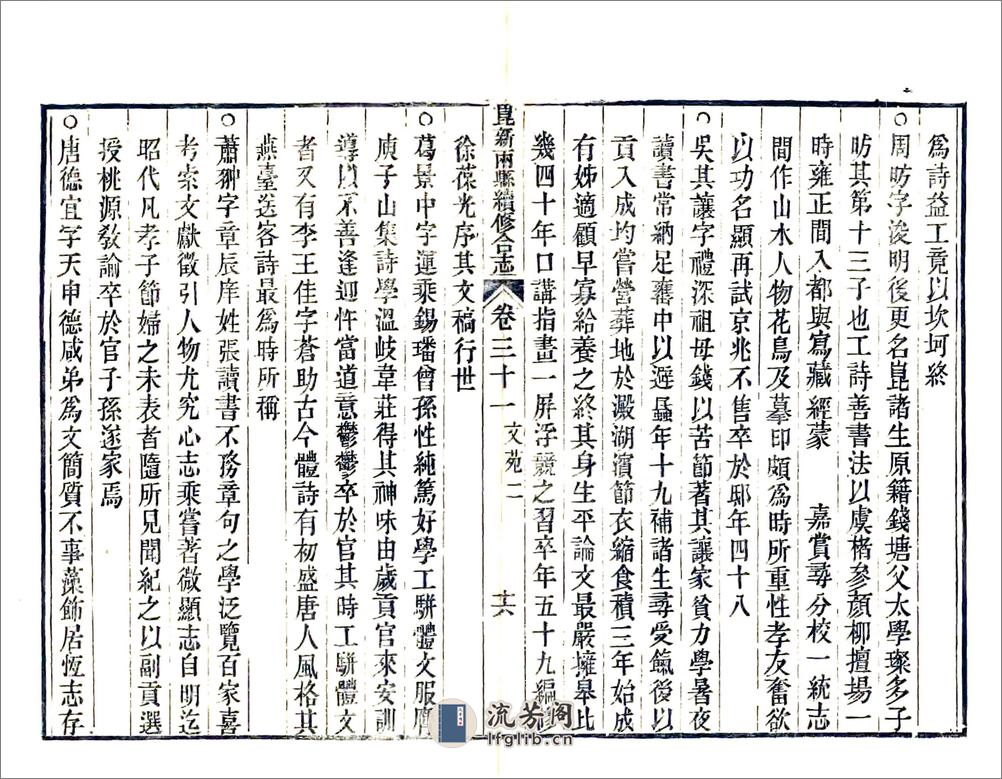 為詩益工竟以坎坷終
○周昉字浚明後更名崑諸生原籍錢塘父太學璨多子
昉其第十三子也工詩善書法以虞楷參顏柳擅場一
時雍正間入都與寫藏經蒙　嘉賞尋分校一統志
間作山水人物花鳥及摹印頗為時所重性孝友奮欲
以功名顯再試京兆不售卒於邸年四十八
○吳其讓字禮深祖母錢以苦節著其讓家貧力學暑夜
讀書常納足甕中以避蟁年十九補諸生尋受餼後以
貢入成均嘗營葬地於澱湖濱節衣縮食積三年始成
有姊適顧早寡給養之終其身生平論文最嚴擁皋比
幾四十年口講指畫一屏浮競之習卒年五十九編修
崑新兩縣續修合志 卷三十一 文苑二 廿六
徐葆光序其文稿行世
○葛景中字運乘錫璠曾孫性純篤好學工駢體文服膺
庾子山集詩學溫岐韋莊得其神味由歲貢官來安訓
導以不善逢迎忤當道意鬱鬱卒於官其時工駢體文
者又有李王佳字蒼助古今體詩有初盛唐人風格其
燕臺送客詩最為時所稱
○蕭翀字章辰庠姓張讀書不務章句之學泛覽百家喜
考索文獻徵引人物尤究心志乘嘗著微顯志自明迄
昭代凡孝子節婦之未表者隨所見聞紀之以副貢選
授桃源教諭卒於官子孫遂家焉
○唐德宜字天申德咸弟為文簡質不事藻飾居恆志存
流芳阁
lfglib.cn